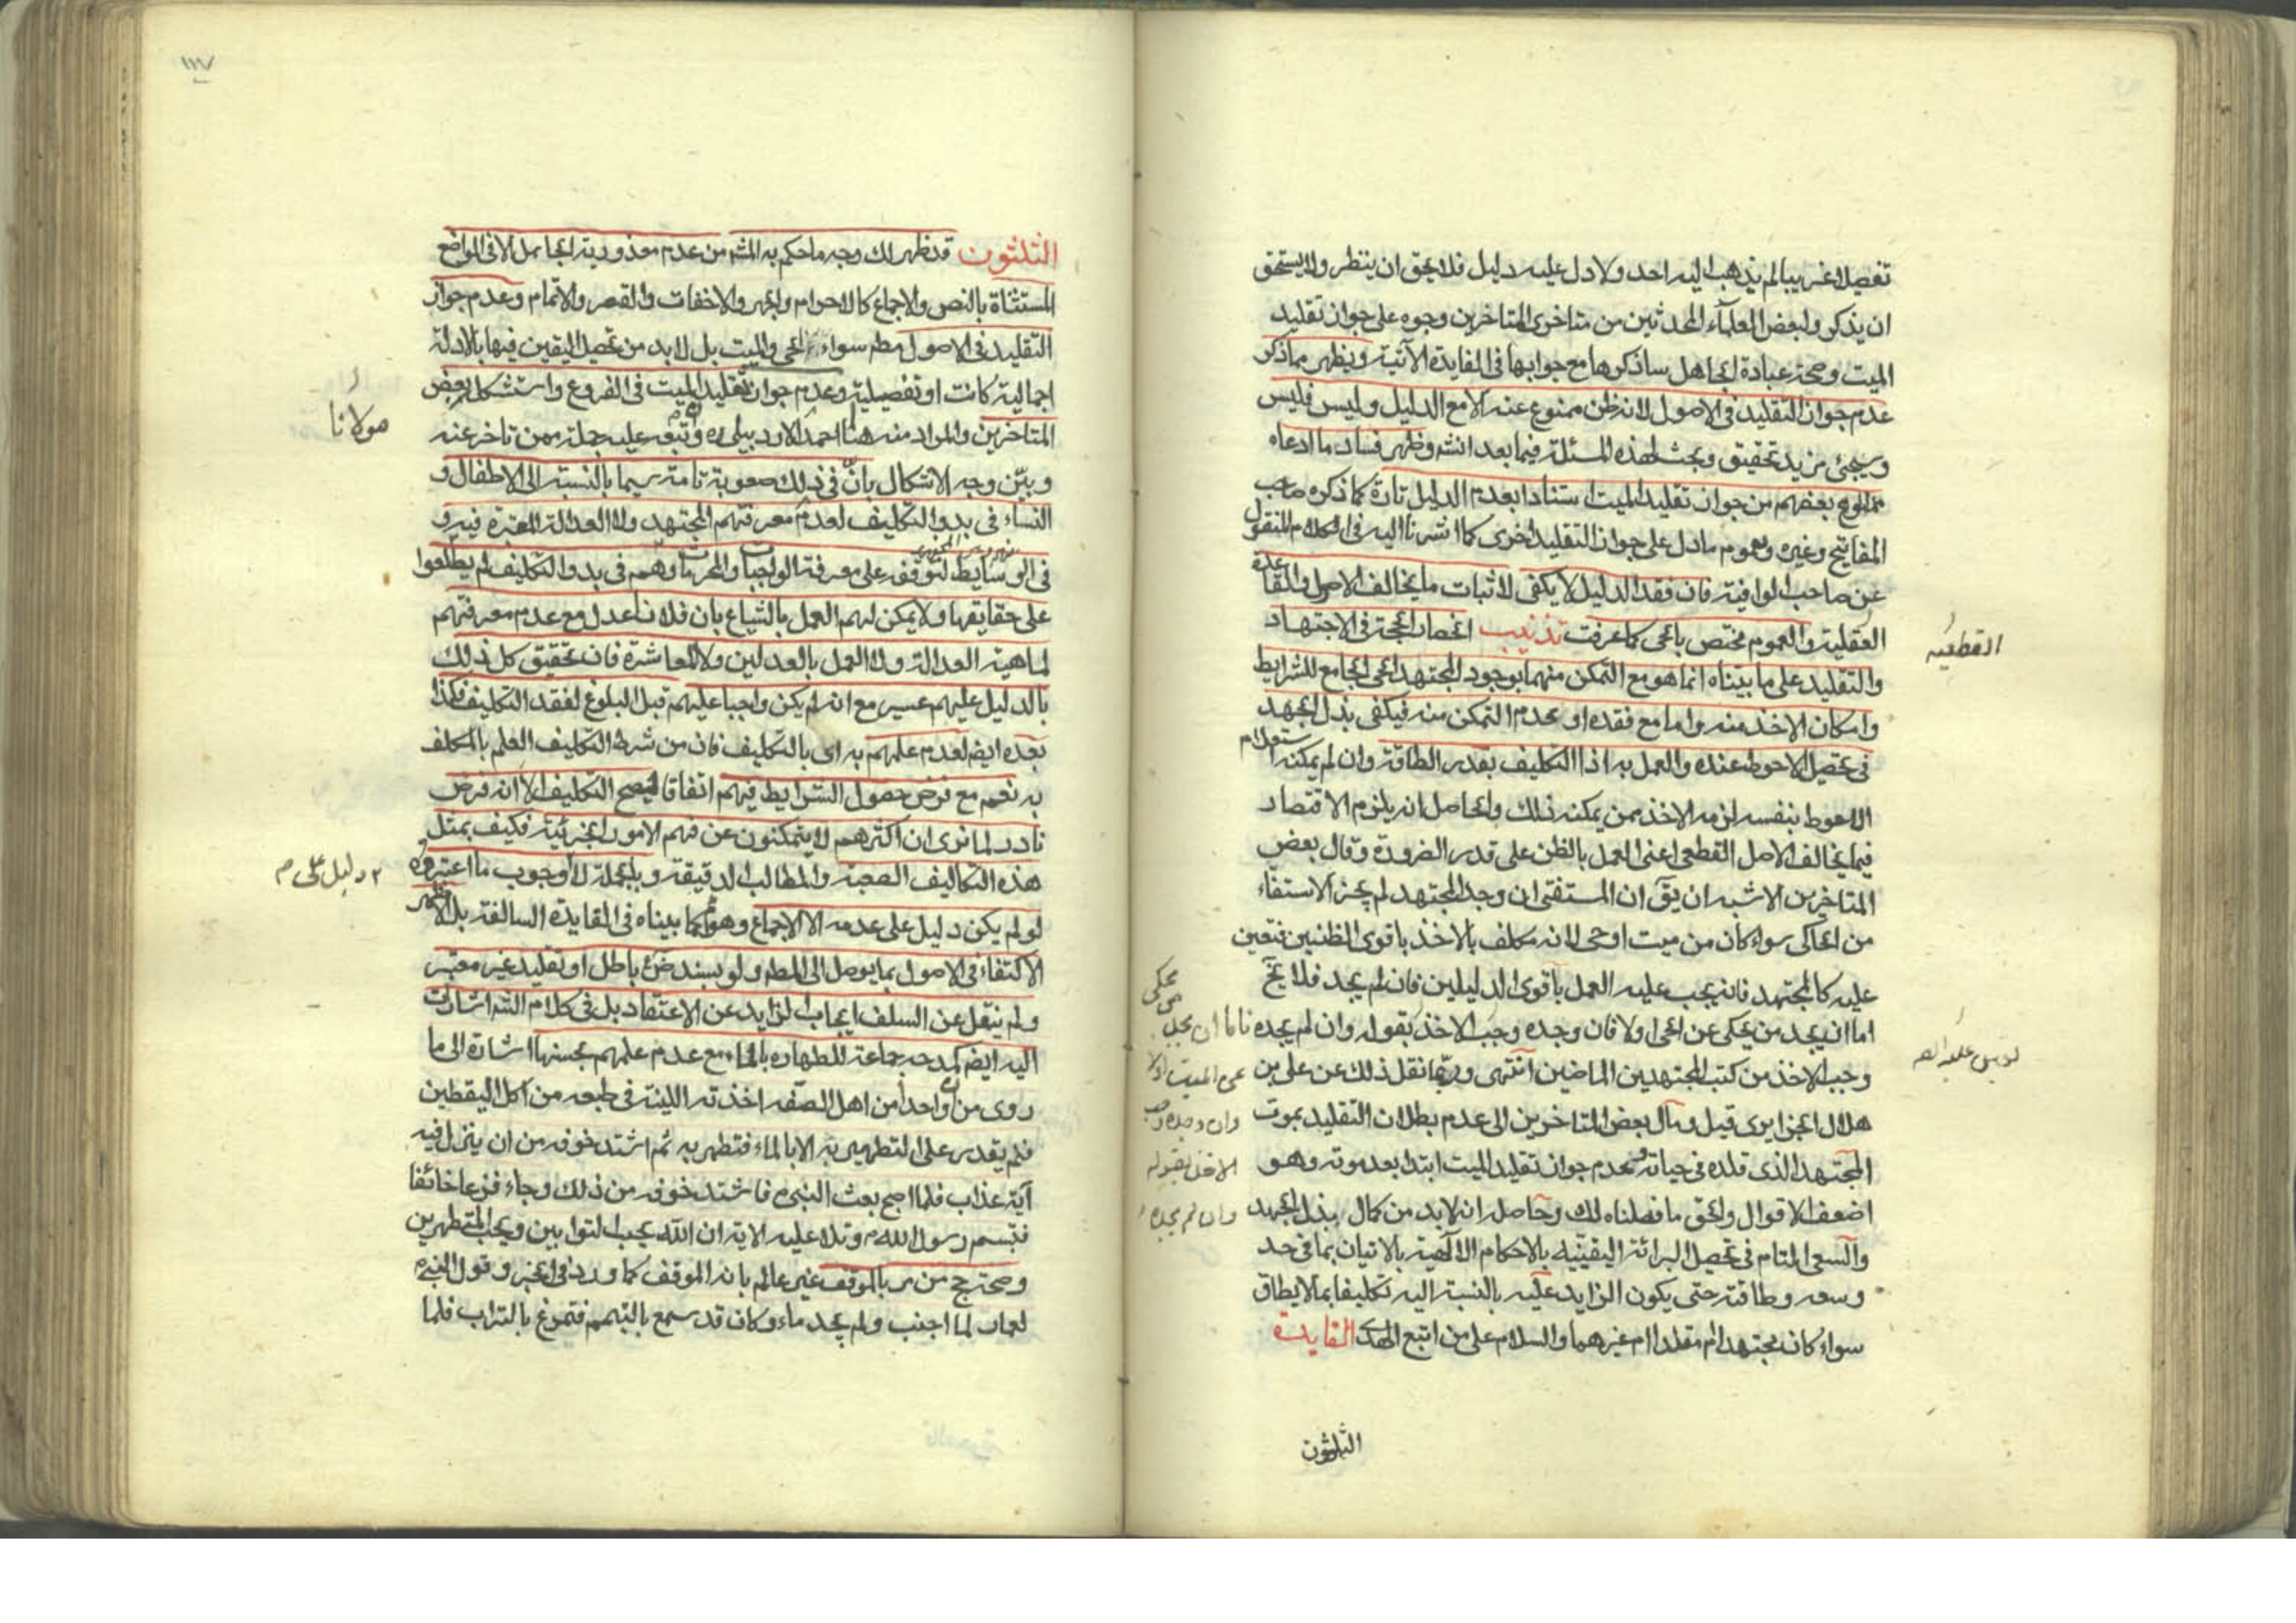 تفصيلا غريبا لم يذهب اليه احد ولا دل عليه دليل فلا يحق ان ينتظر ولا يستحق
ان يذكر ولبعض العلمآء المحدثين من متاخرى المتاخرين وجوه على جواز تقليد
الميت وصحة عبادة الجاهل ساذكرها مع جوابها فى الفايدة الآتية ويظهر مما ذكر
عدم جواز التقليد فى الاصول لانه ظن ممنوع عنه الا مع الدليل وليس فليس
وسيجئ مزيد تحقيق وبحث لهذه المسئلة فيما بعد انشه وظهر فساد ما ادعاه
بعضهم من جواز تقليد الميت استنادا بعدم الدليل تارة كما ذكره صاحب
المفاتيح وغيره وبعموم ما دل على جواز التقليد اخرى كما اشرنا اليه فى الكلام المنقول
عن صاحب الوافية فان فقد الدليل لا يكفى لاثبات ما يخالف الاصل والقاعدة
العقلية والعموم مختص بالحى كما عرفت تذنيب انحصار الحجة فى الاجتهاد
القطعيه
والتقليد على ما بيناه انما هو مع التمكن منهما بوجود المجتهد الحى الجامع للشرايط
وامكان الاخذ منه واما مع فقده او عدم التمكن منه فيكفى بذل الجهد
فى تحصيل الاحوط عنده والعمل به اذا التكليف بقدر الطاقة وان لم يمكنه استعلام
الاحوط بنفسه لزمه الاخذ ممن يمكنه ذلك والحاصل انه يلزم الاقتصاد
فيما يخالف الاصل القطعى اعنى العمل بالظن على قدر الضرورة وقال بعض
المتاخرين الاشبه ان يق ان المستفتى ان وجد المجتهد لم يجز الاستفتاء
من الحاكى سواء كان من ميت او حى لانه مكلف بالاخذ باقوى الظنين فتعين
عليه كالمجتهد فانه يجب عليه العمل باقوى الدليلين فان لم يجد فلا يخ
اما ان يجد من يحكى عن الحى اولا فان وجده وجب الاخذ بقوله وان لم يجده فاما ان يجد
من يحكى
عن الميت اولا
وان وجده وجب
الاخذ بقوله
وان لم يجده
وجب الاخذ من كتب المجتهدين الماضين انتهى وربما نقل ذلك عن على بن
هلال الجزايرى قيل ومال بعض المتاخرين الى عدم بطلان التقليد بموت
المجتهد الذى قلده فى حياته وعدم جواز تقليد الميت ابتدا بعد موته وهو
اضعف الاقوال والحق ما فصلناه لك وحاصله انه لابد من كمال بذل الجهد
والسعى التام فى تحصيل البرائة اليقينيه بالاحكام الالهية بالاتيان بما فى حد
وسعه وطاقته حتى يكون الزايد عليه بالنسبة اليه تكليفا بما لا يطاق
سواء كان مجتهدا ام مقلدا ام غيرهما والسلام على من اتبع الهدى الفايدة
الثلثون
١١٧
الثلثون قد ظهر لك وجه ما حكم به المشه من عدم معذورية الجاهل الا فى المواضع
المستثناة بالنص والاجماع كالاحرام والجهر والاخفات والقصر والاتمام وعدم جواز
التقليد فى الاصول مطم سواء الحى والميت بل لابد من تحصيل اليقين فيها بالادلة
اجمالية كانت او تفصيلية وعدم جواز تقليد الميت فى الفروع واستشكل بعض
المتاخرين والمراد منه هنا احمد الاردبيلى ره وتبعه عليه جملة ممن تاخر عنه
مولانا
وبيّن وجه الاشكال بانّ فى ذلك صعوبة تامة سيما بالنسبة الى الاطفال و
النساء فى بدو التكليف لعدم معرفتهم المجتهد ولا العدالة المعتبرة فيه و
فى الوسايط لتوقفه على معرفة الواجبات والمحرمات وهم فى بدو التكليف لم يطلعوا
على حقايقها ولا يمكن لهم العمل بالشياع بان فلانا عدل مع عدم معرفتهم
لماهية العدالة ولا العمل بالعدلين ولا المعاشرة فان تحقيق كل ذلك
بالدليل عليهم عسير مع انه لم يكن واجبا عليهم قبل البلوغ لفقد التكليف فكذا
بعده ايضه لعدم علمهم به اى بالتكليف فان من شرط التكليف العلم بالمكلف
به نعم مع فرض حصول الشرايط فيهم اتفاقا فيصح التكليف الا انه فرض
نادر لما نرى ان اكثرهم لا يتمكنون عن فهم الامور الجزئية فكيف بمثل
هذه التكاليف الصعبة والمطالب الدقيقة وبالجملة لا وجوب ما اعتبروه
لو لم يكن دليل على عدمه الا الاجماع وهو كما بيناه فى الفايدة السالفة بل الاظهر
الاكتفاء فى الاصول بما يوصل الى المطه ولو بسند ضن باطل او تقليد غير معتبر
ولم ينقل عن السلف ايجاب الزايد عن الاعتقاد بل فى كلام الشه اشارات
اليه ايضه كمدحه جماعة للطهاره بالماء مع عدم علمهم بحسنها اشارة الى ما
روى من ان واحدا من اهل الصفه اخذته اللينة فى طبعه من اكل اليقطين
فلم يقدر على التطهير به الا بالماء فتطهر به ثم اشتد خوفه من ان ينزل فيه
آية عذاب فلما اصبح بعث النبى ص فاشتد خوفه من ذلك وجاء فزعا خائفا
فتبسم رسول الله ص وتلا عليه الاية ان الله يحب التوابين ويحب المتطهرين
وصحة حج من مر بالموقف غير عالم بانه الموقف كما ورد فى الخبر وقول النبى ص
لعمار لما اجنب ولم يجد ماء وكان قد سمع بالتيمم فتمرغ بالتراب فلما